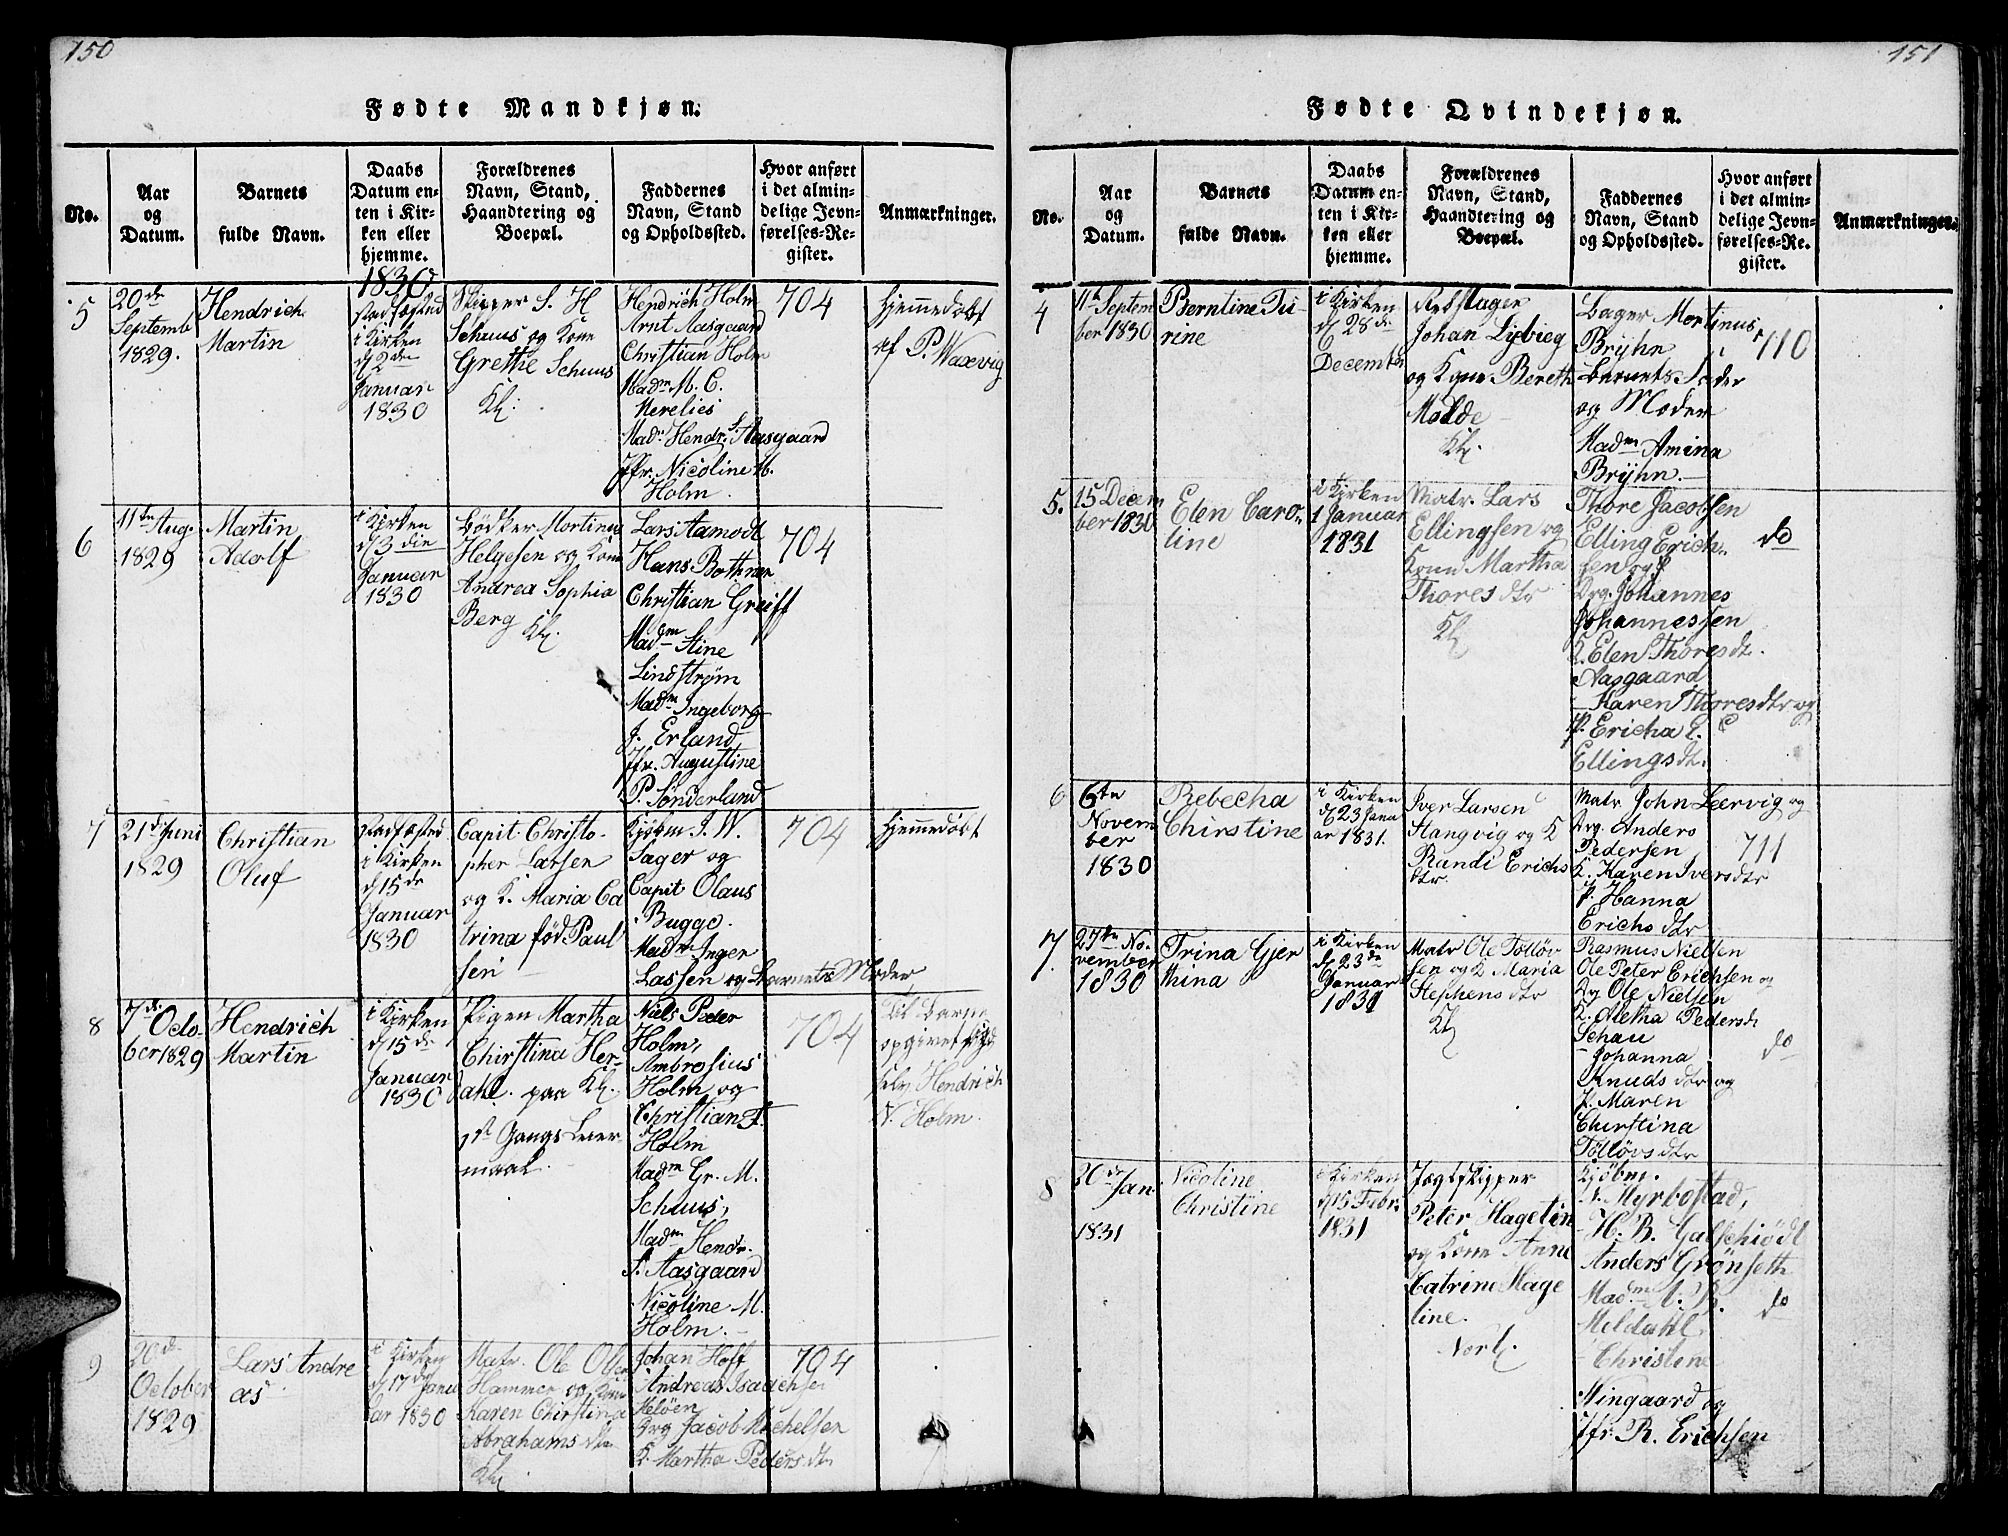 150
Fødte Mandkjøn.
No.
Aar
og
Datum.
Barnets
fulde Navn.
Daabs
Datum en-
ten i Kir-
ken eller
hjemme.
Forældrenes
Navn, Stand,
Haandtering og
Boepæl.
Faddernes
Navn, Stand
og Opholdssted.
Hvor anført
i det almin-
delige Jevn-
førelses-Re-
gister.
Anmærkninger.
1830
5
20de
Septemb
1829.
Hendrich
Martin
Stadfæsted
i Kirken
d 2den
Januar
1830
Skipper S. H
Schuus og Kone
Grethe Schuus
Kl.
Hendrich Holm
Arnt Aasgaard
Christian Holm
Madm M. C.
Merelies
Madm Hendr. S. Aasgaard
Jfr. Nicoline M.
Holm.
704
Hjemmedøbt
af P. Waxvig
6
11te Aug.
1829
Martin
Adolf
i Kirken
d 3die
Januar
1830
Bödker Mortinus
Helgesen og Kone
Andrea Sophia
Berg Kl.
Lars Aamodt
Hans Bothner
Christian Greiff
Madm Stine
Lindstrøm
Madm Ingeborg
J. Erland
Jfr. Augustine
P. Sønderland
704
7
21de Juni
1829
Christian
Oluf
Stadfæsted
i Kirken
d 15de
Januar
1830
Capit Christo-
pher Larsen
og K. Maria Ca
trina fød Paul
sen
Kjøbm J. W.
Sager og
Capit Olaus
Bugge.
Madm Inger
Lassen og Barnets Moder
704
Hjemmedøbt
8
7de Octo-
ber 1829
Hendrich
Martin
i Kirken
d 15de
Januar
1830
Pigen Martha
Chirstina Her-
dahl. paa Kl.
1ste Gangs Leier-
maal.
Niels Peder
Holm,
Ambrosius
Holm og
Christian F.
Holm
Madm Gr. M.
Schuus,
Madm Hendr.
S. Aasgaard
Nicoline M.
Holm.
704
Til Barne
opgivet
Hendrich
N. Holm.
9
20de
October
1829
Lars Andre
as
i Kirken
d 17de Janu
ar 1830
Matr. Ole Olsen
Hammer og Kone
Karen Chirstina
Abrahams dtr
Kl.
Johan Hoff
Andreas Isaachsen
Meløen
Drg Jacob Mechelsen
K. Martha Peders dtr
704
151
Fødte Qvindekjøn.
No.
Aar
og
Datum.
Barnets
fulde Navn.
Daabs
Datum en-
ten i Kir-
ken eller
hjemme.
Forældrenes
Navn, Stand,
Haandtering og
Boepæl.
Faddernes
Navn, Stand
og Opholdssted.
Hvor anført
i det almin-
delige Jevn-
førelses-Re-
gister.
Anmærkninger.
4
11te Septem
ber 1830
Berntine Tu-
rine
i Kirken
d 28de
December
Rebslager
Johan Lysvieg
og Kone Bereth
Molde
Kl.
Bager Mortinus
Bryhn
Barnets Fader
og Moder
Madm Amina
Bryhn.
710
5.
15 Decem
ber 1830
Elen Caro-
line
i Kirken
1 Januar
1831
Matr. Lars
Ellingsen og
Kone Martha
Thores dtr
Kl
Thore Jacobsen
Elling Erich-
sen og
Drg. Johannes
Johannessen
K. Elen Thores dtr.
Aasgaard
Karen Thores dtr og
P. Ericha E.
Ellings dtr.
do
6
6te
Novem
ber
1830
Rebecha
Chirstine
i Kirken
d 23 Janu
ar 1831.
Iver Larsen
Stangvig og K
Randi Erichs
dtr.
Matr John Leervig og
Drg. Anders
Pedersen
K. Karen Ivers dtr
P. Hanna
Erichs dtr
711
7
27te No-
vember
1830
Trina Gjer
thina
i Kirken
d 23de
Januar
1831
Matr Ole Tølløv
sen og K Maria
Stephens dtr
Kl
Rasmus Nielsen
Ole Peter Erichsen og
Dg Ole Nielsen
K. Aletha Peders dt
Schau
Johanna
Knuds dtr og
P. Maren
Chirstina
Tölløvs dtr
do
8
20de Jan
1831
Nicoline
Christine
i Kirken
d 15 Febr.
1831
Jægtskipper
Peter Hagelin
og Kone Anne
Catrine Hage
line.
Norl.
Kjöbm.
N. Myrbostad,
H. B. Galschiødt
Anders Grönseth
Madm A. B.
Meldahl
Christine
Wingaard og
Jfr R. Erichsen
do